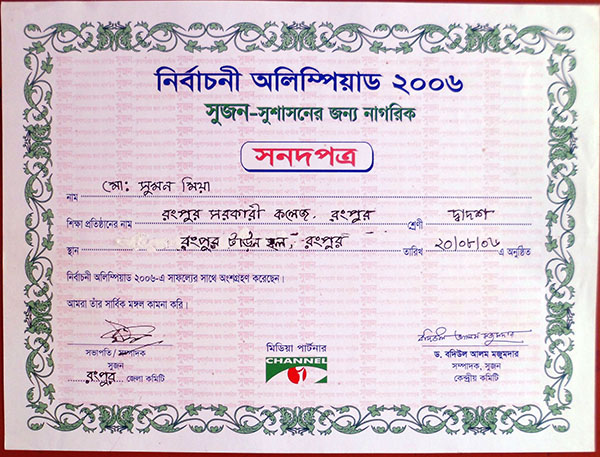 নির্বাচনী অলিম্পিয়াড ২০০৬
সুজন-সুশাসনের জন্য নাগরিক
সনদপত্র
নাম মো: সুমন মিয়া
শিক্ষা প্রতিষ্ঠানের নাম রংপুর সরকারী কলেজ, রংপুর শ্রেণী দ্বাদশ
স্থান রংপুর টাউন হল, রংপুর তারিখ ২০/০৮/০৬ এ অনুষ্ঠিত
নির্বাচনী অলিম্পিয়াড ২০০৬-এ সাফল্যের সাথে অংশগ্রহণ করেছেন।
আমরা তাঁর সার্বিক মঙ্গল কামনা করি।
সভাপতি / সম্পাদক
সুজন
রংপুর জেলা কমিটি
মিডিয়া পার্টনার
CHANNEL
বদিউল আলম মজুমদার
ড. বদিউল আলম মজুমদার
সম্পাদক, সুজন
কেন্দ্রীয় কমিটি